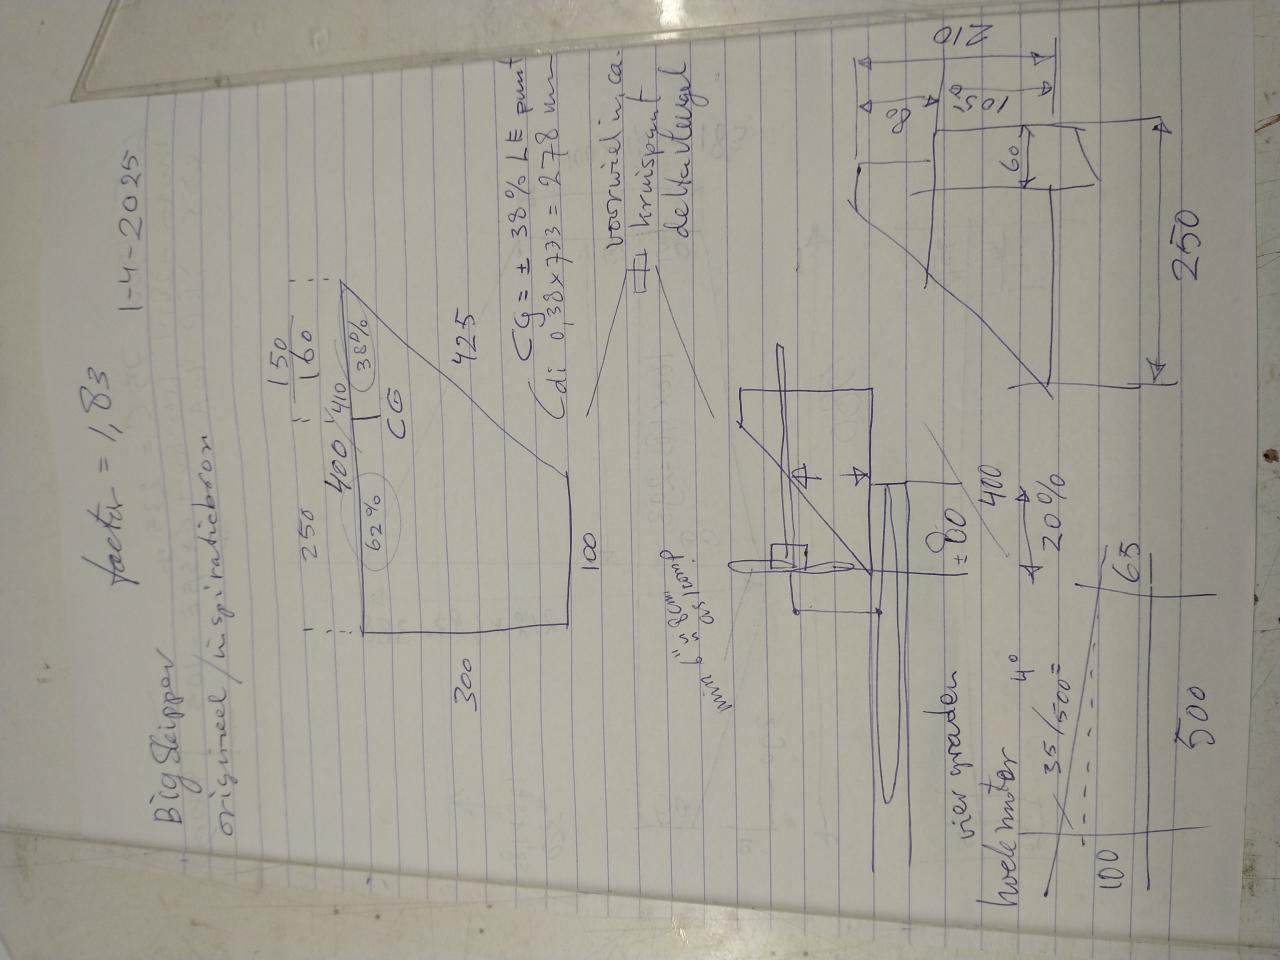 factor = 1,83
1-4-2025
Big Skipper
origineel / inspiratiebron
250
150
160
400/410
62%
38%
CG
425
300
100
CG = ± 38% LE punt
Cdi 0,38x733 = 278 mm
voorwiel in, ca.
kruispunt
deltavleugel
min 6" 
± 80
210
80
105
60
250
vier graden
hoek motor 4°
400
20%
35/500 =
100
65
500